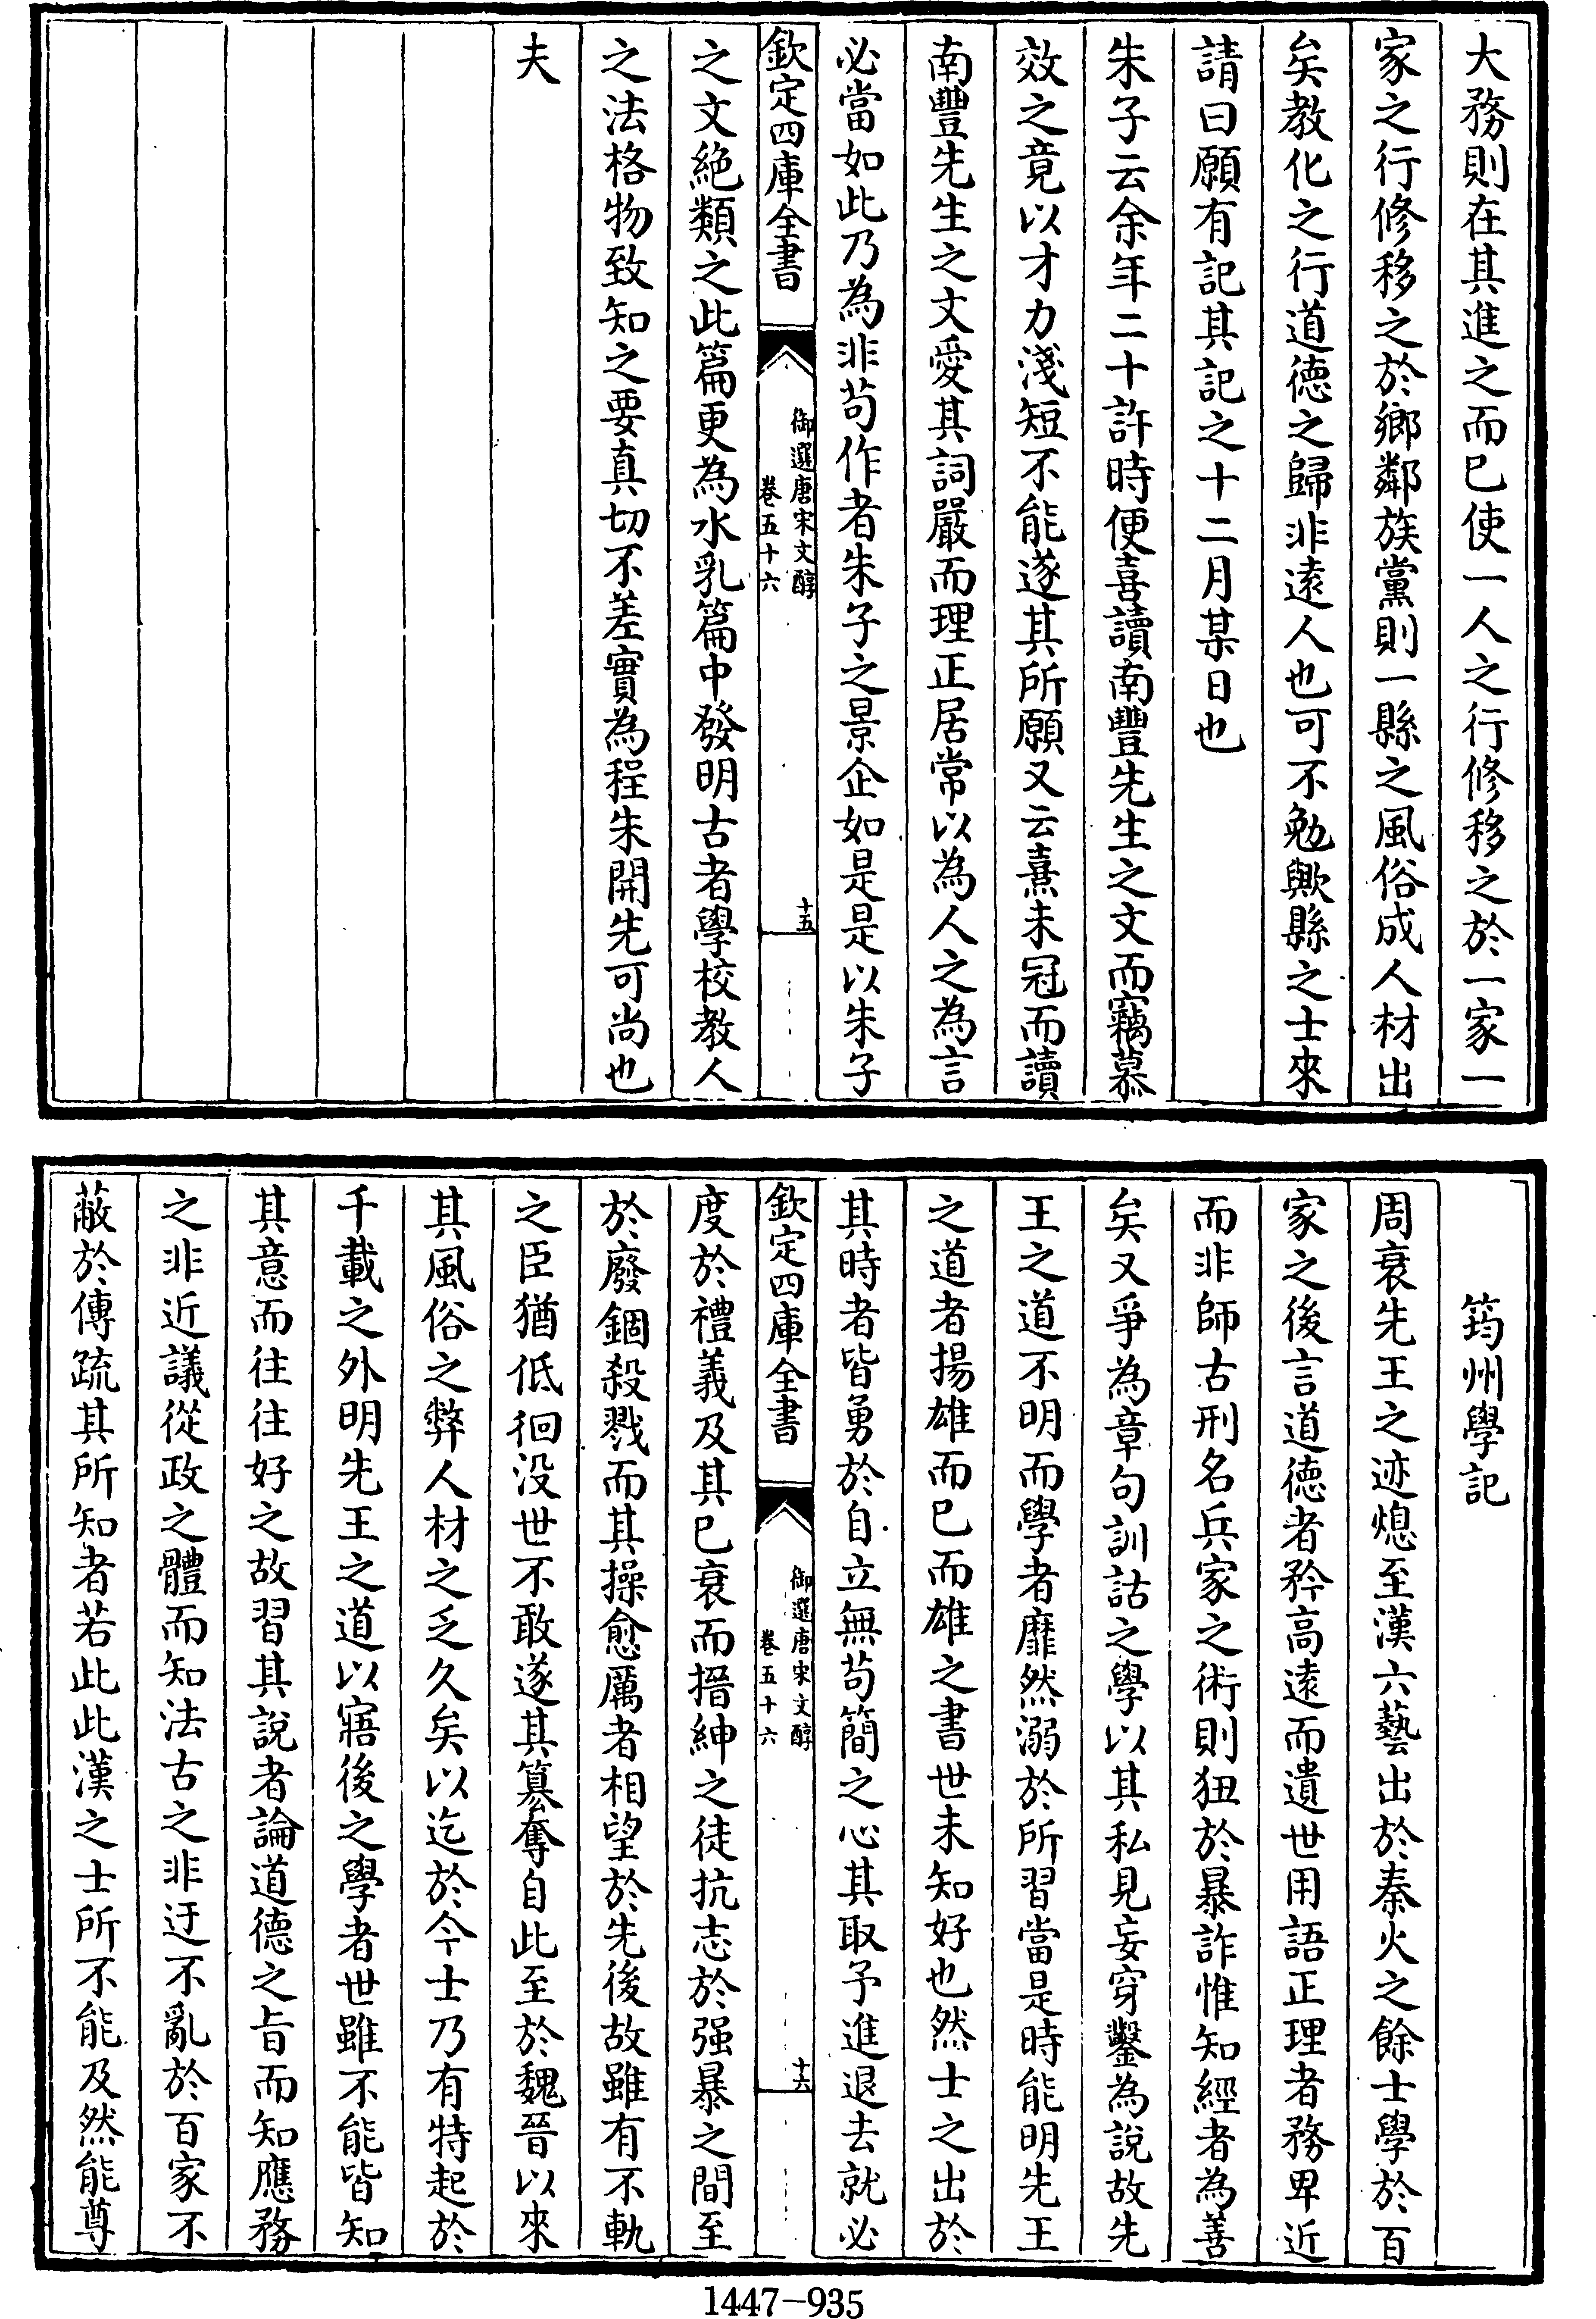 大務則在其進之而已使一人之行修移之於一家一
家之行修移之於鄉鄰族黨則一縣之風俗成人材出
矣教化之行道德之歸非遠人也可不勉歟縣之士來
請曰願有記其記之十二月某日也
朱子云余年二十許時便喜讀南豐先生之文而竊慕
效之竟以才力淺短不能遂其所願又云熹未冠而讀
南豐先生之文愛其詞嚴而理正居常以為人之為言
必當如此乃為非苟作者朱子之景企如是是以朱子
欽定四庫全書
御選唐宋文醇
卷五十六
十五
之文絶類之此篇更為水乳篇中發明古者學校教人
之法格物致知之要真切不差實為程朱開先可尚也
夫
筠州學記
周衰先王之迹熄至漢六藝出於秦火之餘士學於百
家之後言道德者矜高遠而遺世用語正理者務卑近
而非師古刑名兵家之術則狃於暴詐惟知經者為善
矣又爭為章句訓詁之學以其私見妄穿鑿為說故先
王之道不明而學者靡然溺於所習當是時能明先王
之道者揚雄而已而雄之書世未知好也然士之出於
其時者皆勇於自立無苟簡之心其取予進退去就必
欽定四庫全書
御選唐宋文醇
卷五十六
十六
度於禮義及其已衰而搢紳之徒抗志於强暴之間至
於廢錮殺戮而其操愈厲者相望於先後故雖有不軌
之臣猶低徊沒世不敢遂其篡奪自此至於魏晉以來
其風俗之弊人材之乏久矣以迄於今士乃有特起於
千載之外明先王之道以寤後之學者世雖不能皆知
其意而往往好之故習其說者論道德之旨而知應務
之非近議從政之體而知法古之非迂不亂於百家不
蔽於傳疏其所知者若此此漢之士所不能及然能尊
1447-935